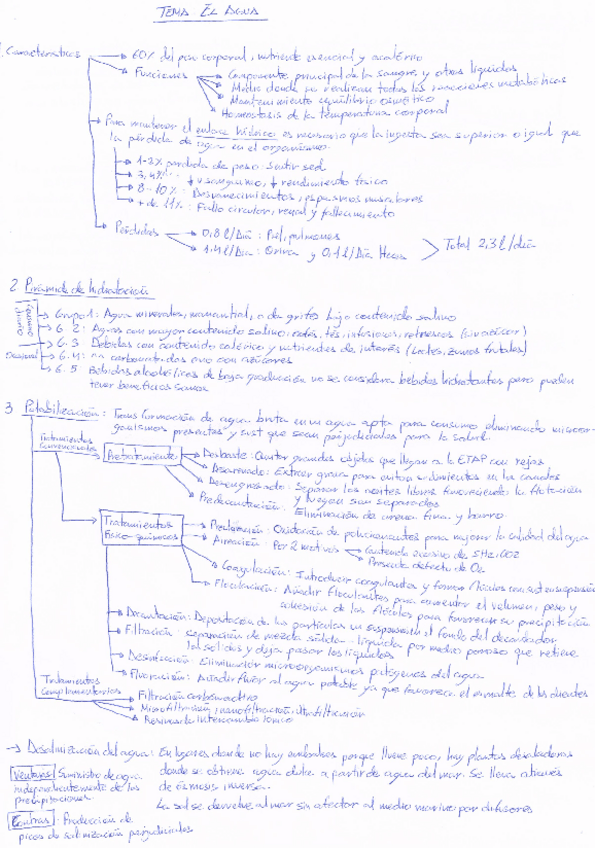 TEMA EL AGUA
1. Características → 60% del peso corporal, nutriente esencial y acalórico
→ Funciones → Componente principal de la sangre y otros líquidos
→ Medio donde se realizan todas las reacciones metabólicas
→ Mantenimiento equilibrio osmótico
→ Homeostasis de la temperatura corporal
→ Para mantener el balance hídrico es necesario que la ingesta sea superior o igual que
la pérdida de agua en el organismo.
→ 1-2% perdida de peso: Sentir sed
→ 3, 4% : ↓ v sanguíneo, ↓ rendimiento físico
→ 8-10% : Desvanecimientos, espasmos musculares
→ + de 11% : Fallo circular, renal y fallecimiento
→ Pérdidas → 0,8 l/Día : Piel, pulmones
→ 1,4 l/Día : Orina y 0,1 l/Día Heces > Total 2,3 l/día
2 Pirámide de hidratación
→ Grupo 1: Aguas minerales, manantial, o de grifo bajo contenido salino
→ G 2: Aguas con mayor contenido salino, cafés, tés, infusiones, refrescos (sin azúcar)
→ G.3 Bebidas con contenido calórico y nutrientes de interés (Leches, zumos frutales)
→ G.4: carbonatadas o no con azúcares
→ G.5 Bebidas alcohólicas de baja graduación no se considera bebidas hidratantes pero pueden
tener beneficios sanos
3 Potabilización: Transformación de agua bruta en un agua apta para consumo eliminando microor-
ganismos presentes y sust que sean perjudiciales para la salud.
Tratamientos
Convencionales
→ Pretratamiento → Desbaste: Quitar grandes objetos que llegan a la ETAP con rejas
→ Desarenado: Extraer grava para evitar sedimentos en los canales
→ Desengrasado: Separar los aceites libres favoreciendo la flotación
y luego son separados
→ Predecantación: Eliminación de arena fina y barro
Tratamientos
Físico-químicos
→ Preoxidación: Oxidación de para mejorar la calidad del agua
→ Aireación: Por 2 motivos → Contenido excesivo de SH2, CO2
→ Presenta defecto de O2
→ Coagulación: Introducir coagulantes y forman flóculos con sust en suspensión
→ Floculación: Añadir floculantes para aumentar el volumen, peso y
cohesión de los flóculos para favorecer su precipitación
→ Decantación: Depositación de las partículas en suspensión al fondo del decantador
→ Filtración: separación de mezcla sólida-líquida por medio poroso que retiene
los sólidos y deja pasar los líquidos
→ Desinfección: Eliminación microorganismos patógenos del agua
→ Fluoración: Añadir flúor al agua potable ya que favorece el esmalte de los dientes
Tratamientos
Complementarios → Filtración carbón activo
→ Microfiltración, nanofiltración, ultrafiltración
→ Resinas de intercambio iónico
→ Desalinización del agua: En lugares donde no hay embalses porque llueve poco, hay plantas desaladoras
donde se obtiene agua dulce a partir de agua del mar. Se lleva a través
de ósmosis inversa.
La sal se devuelve al mar sin afectar al medio marino por difusores
Ventajas: Suministro de agua
independientemente de las
precipitaciones
Contras: Producción de
picos de salinización perjudiciales